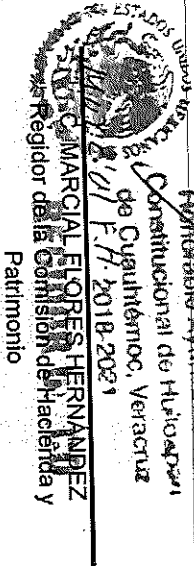 ESTADOS UNIDOS MEXICANOS
Constitucional de Huiloapan
de Cuauhtémoc, Veracruz
2018-2021
C. MARCIAL FLORES HERNÁNDEZ
Regidor de la Comisión de Hacienda y
Patrimonio